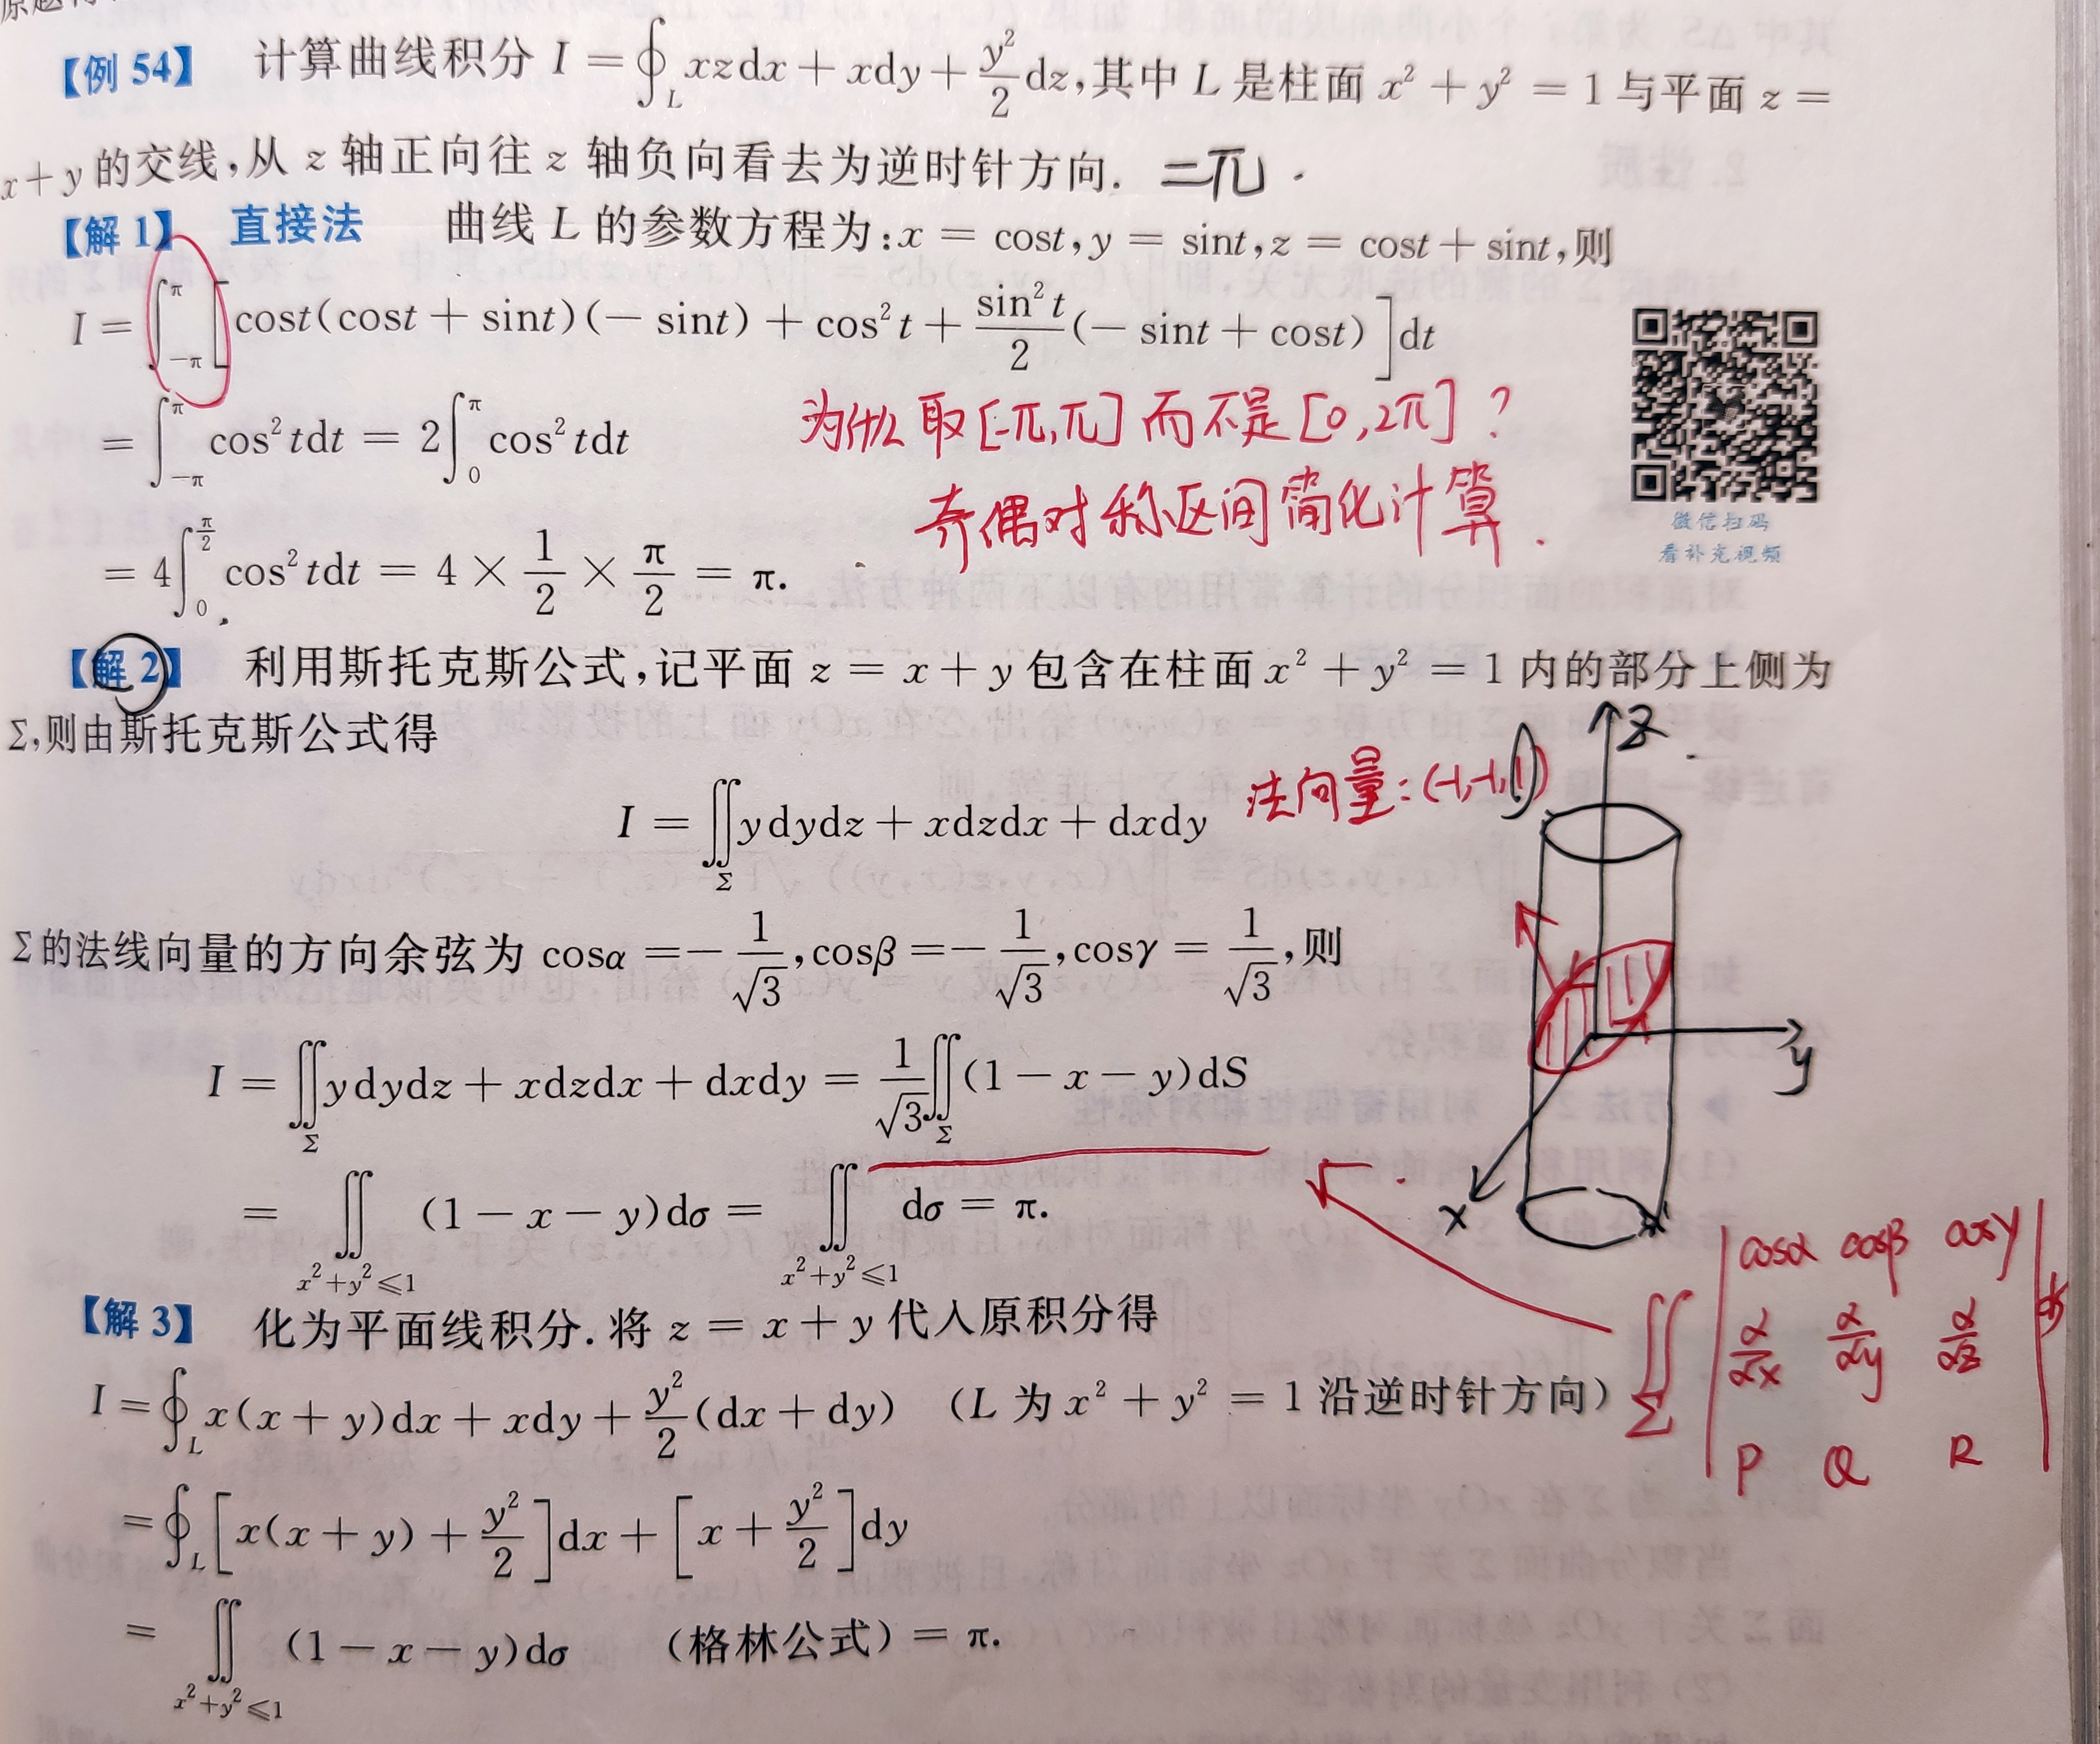 【例 54】 计算曲线积分 I = ∮_L xzdx + xdy + y²/2 dz,其中 L 是柱面 x² + y² = 1 与平面 z =
x+y 的交线,从 z 轴正向往 z 轴负向看去为逆时针方向. =π.
【解 1】 直接法 曲线 L 的参数方程为:x = cost, y = sint, z = cost + sint,则
I = ∫_{-π}^{π} [cost(cost + sint)(− sint) + cos²t + sin²t/2 (− sint + cost)]dt
= ∫_{-π}^{π} cos²tdt = 2∫_0^π cos²tdt
为什么取[-π,π]而不是[0,2π]?
奇偶对称区间简化计算.
= 4∫_0^{π/2} cos²tdt = 4 × 1/2 × π/2 = π.
微信扫码
看补充视频
【解 2】 利用斯托克斯公式,记平面 z = x + y 包含在柱面 x² + y² = 1 内的部分上侧为
Σ,则由斯托克斯公式得
I = ∬_Σ ydydz + xdzdx + dxdy
法向量:(-1,-1,1)
z
y
x
Σ的法线向量的方向余弦为 cosα = − 1/√3, cosβ = − 1/√3, cosγ = 1/√3,则
I = ∬_Σ ydydz + xdzdx + dxdy = 1/√3 ∬_Σ (1 − x − y)dS
= ∬_{x²+y²≤1} (1 − x − y)dσ = ∬_{x²+y²≤1} dσ = π.
∬_Σ | cosα cosβ cosγ |
| ∂/∂x ∂/∂y ∂/∂z | ds
| P Q R |
【解 3】 化为平面线积分. 将 z = x + y 代入原积分得
I = ∮_L x(x + y)dx + xdy + y²/2 (dx + dy) (L 为 x² + y² = 1 沿逆时针方向)
= ∮_L [x(x + y) + y²/2]dx + [x + y²/2]dy
= ∬_{x²+y²≤1} (1 − x − y)dσ (格林公式) = π.